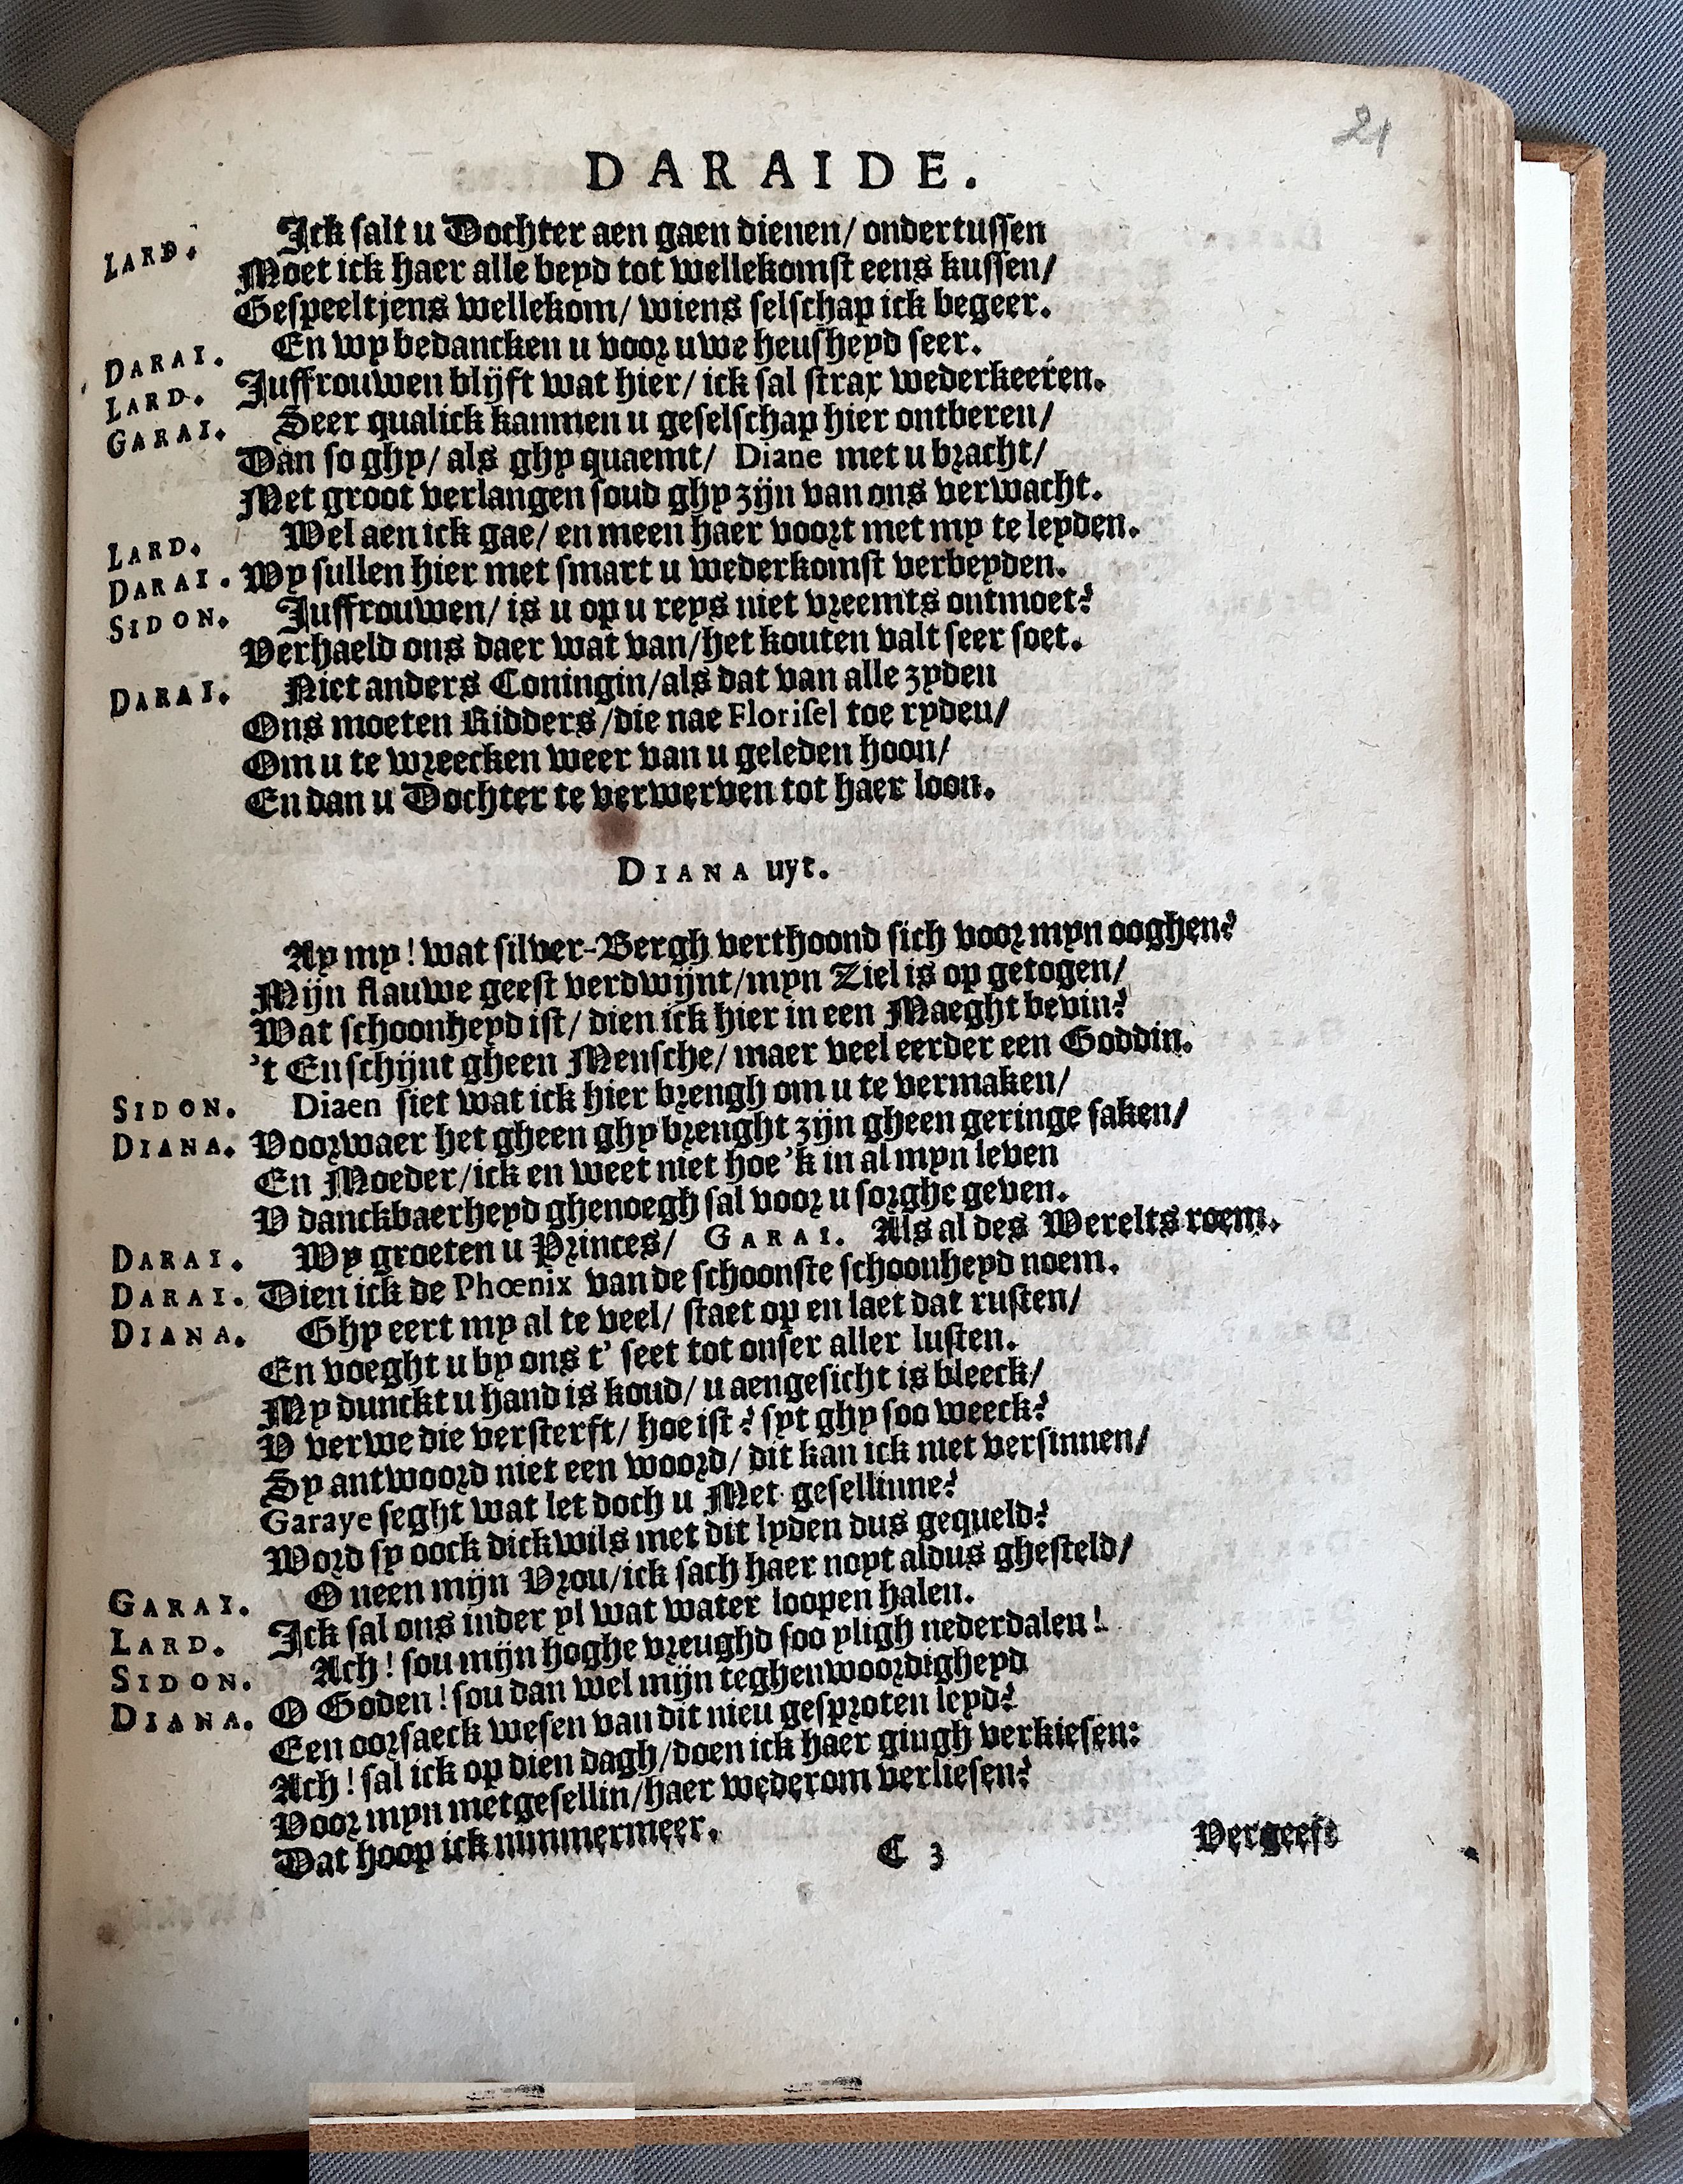 21
DARAIDE.
LARD. Ick salt u Dochter aen gaen dienen/ ondertussen
Moet ick haer alle beyd tot wellekomst eens kussen/
Gespeeltjens wellekom/ wiens selschap ick begeer.
DARAI. En wy bedancken u voor uwe heusheyd seer.
LARD. Juffrouwen blijft wat hier/ ick sal strax wederkeeren.
GARAI. Seer qualick kanmen u geselschap hier ontberen/
Dan so ghy/ als ghy quaemt/ Diane met u bracht/
Met groot verlangen soud ghy zijn van ons verwacht.
LARD. Wel aen ick gae/ en meen haer voort met my te leyden.
DARAI. Wy sullen hier met smart u wederkomst verbeyden.
SIDON. Juffrouwen/ is u op u reys niet vreemts ontmoet?
Verhaeld ons daer wat van/het kouten valt seer soet.
DARAI. Niet anders Coningin/als dat van alle zyden
Ons moeten Ridders/die nae Florisel toe ryden/
Om u te wreecken weer van u geleden hoon/
En dan u Dochter te verwerven tot haer loon.
DIANA uyt.
Ay my! wat silver-Bergh verthoond sich voor myn ooghen?
Mijn flauwe geest verdwijnt/myn Ziel is op getogen/
Wat schoonheyd ist/ dien ick hier in een Maeght bevin?
't En schijnt gheen Mensche/ maer veel eerder een Goddin.
SIDON. Diaen siet wat ick hier brengh om u te vermaken/
DIANA. Voorwaer het gheen ghy brenght zijn gheen geringe saken/
En Moeder/ick en weet niet hoe 'k in al myn leven
V danckbaerheyd ghenoegh sal voor u sorghe geven.
DARAI. Wy groeten u Princes/ GARAI. Als al des Werelts roem.
DARAI. Dien ick de Phœnix van de schoonste schoonheyd noem.
DIANA. Ghy eert my al te veel/ staet op en laet dat rusten/
En voeght u by ons t' seet tot onser aller lusten.
My dunckt u hand is koud/ u aengesicht is bleeck/
V verwe die versterft/ hoe ist? syt ghy soo weeck?
Sy antwoord niet een woord/ dit kan ick niet versinnen/
Garaye seght wat let doch u Met-gesellinne?
Word sy oock dickwils met dit lyden dus gequeld?
GARAI. O neen mijn Vrou/ick sach haer noyt aldus ghesteld/
LARD. Ick sal ons inder yl wat water loopen halen.
SIDON. Ach! sou mijn hoghe vreughd soo yligh nederdalen!
DIANA. O Goden! sou dan wel mijn teghenwoordigheyd
Een oorsaeck wesen van dit nieu gesproten leyd?
Ach! sal ick op dien dagh/doen ick haer gingh verkiesen:
Voor myn metgesellin/haer wederom verliesen?
Dat hoop ick nimmermeer.
C 3 Vergeeft